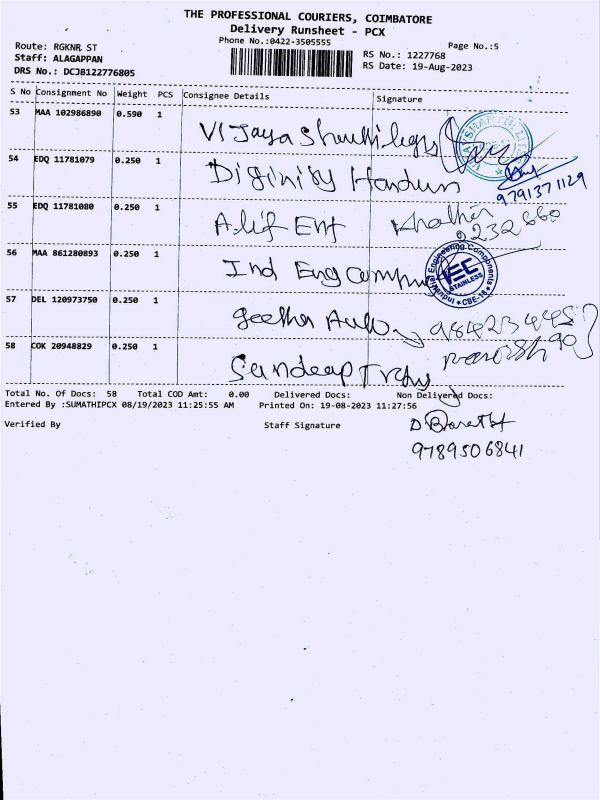 THE PROFESSIONAL COURIERS, COIMBATORE
Delivery Runsheet - PCX
Phone No.:0422-3505555
Page No.:5
Route: RGKNR, ST
Staff: ALAGAPPAN
DRS No.: DCJB122776805
RS No.: 1227768
RS Date: 19-Aug-2023
S No Consignment No Weight PCS Consignee Details Signature
53 MAA 102986890 0.590 1 Vijaya
54 EDQ 11781079 0.250 1 Diginity
9791371129
55 EDQ 11781080 0.250 1 Alif Ent
56 MAA 861280893 0.250 1 Ind Eng
Engineering Components
IEC
STAINLESS
CBE-18
57 DEL 120973750 0.250 1 Geetha Auto
58 COK 20948829 0.250 1 Sandeep
Total No. Of Docs: 58 Total COD Amt: 0.00 Delivered Docs: Non Delivered Docs:
Entered By :SUMATHIPCX 08/19/2023 11:25:55 AM Printed On: 19-08-2023 11:27:56
Verified By Staff Signature
D Bharath
9789506841